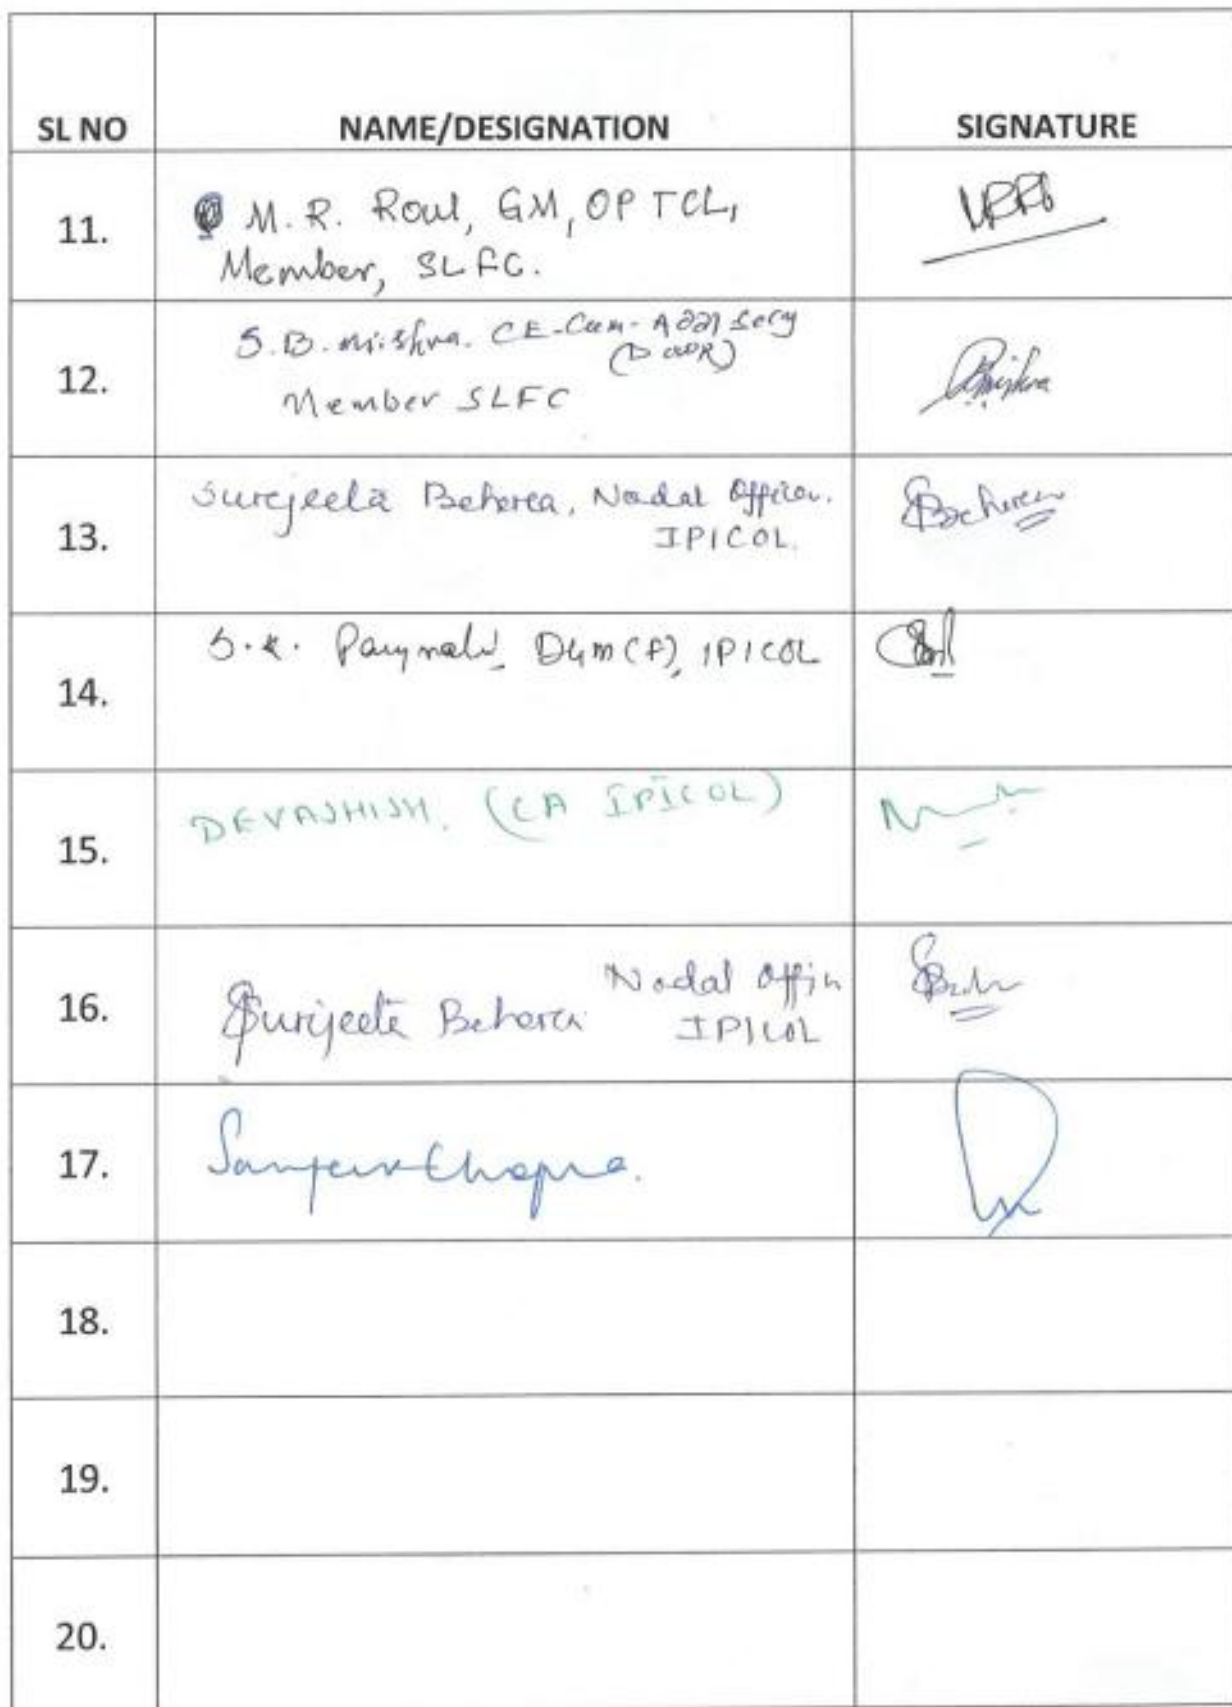 SL NO NAME/DESIGNATION SIGNATURE
11. M.R. Roul, GM, OPTCL,
Member, SLFC.
12. S.B. Mishra. CE-Cum-Addl Secy
(DoWR)
Member SLFC
13. Surejeeta Beherea, Nodal Officer.
IPICOL.
14. S.K. DGM(F), IPICOL
15. DEVASHISH. (CA IPICOL)
16. Surijeeta Beherea Nodal
IPICOL
17. Sanjeev Chopra.
18.
19.
20.